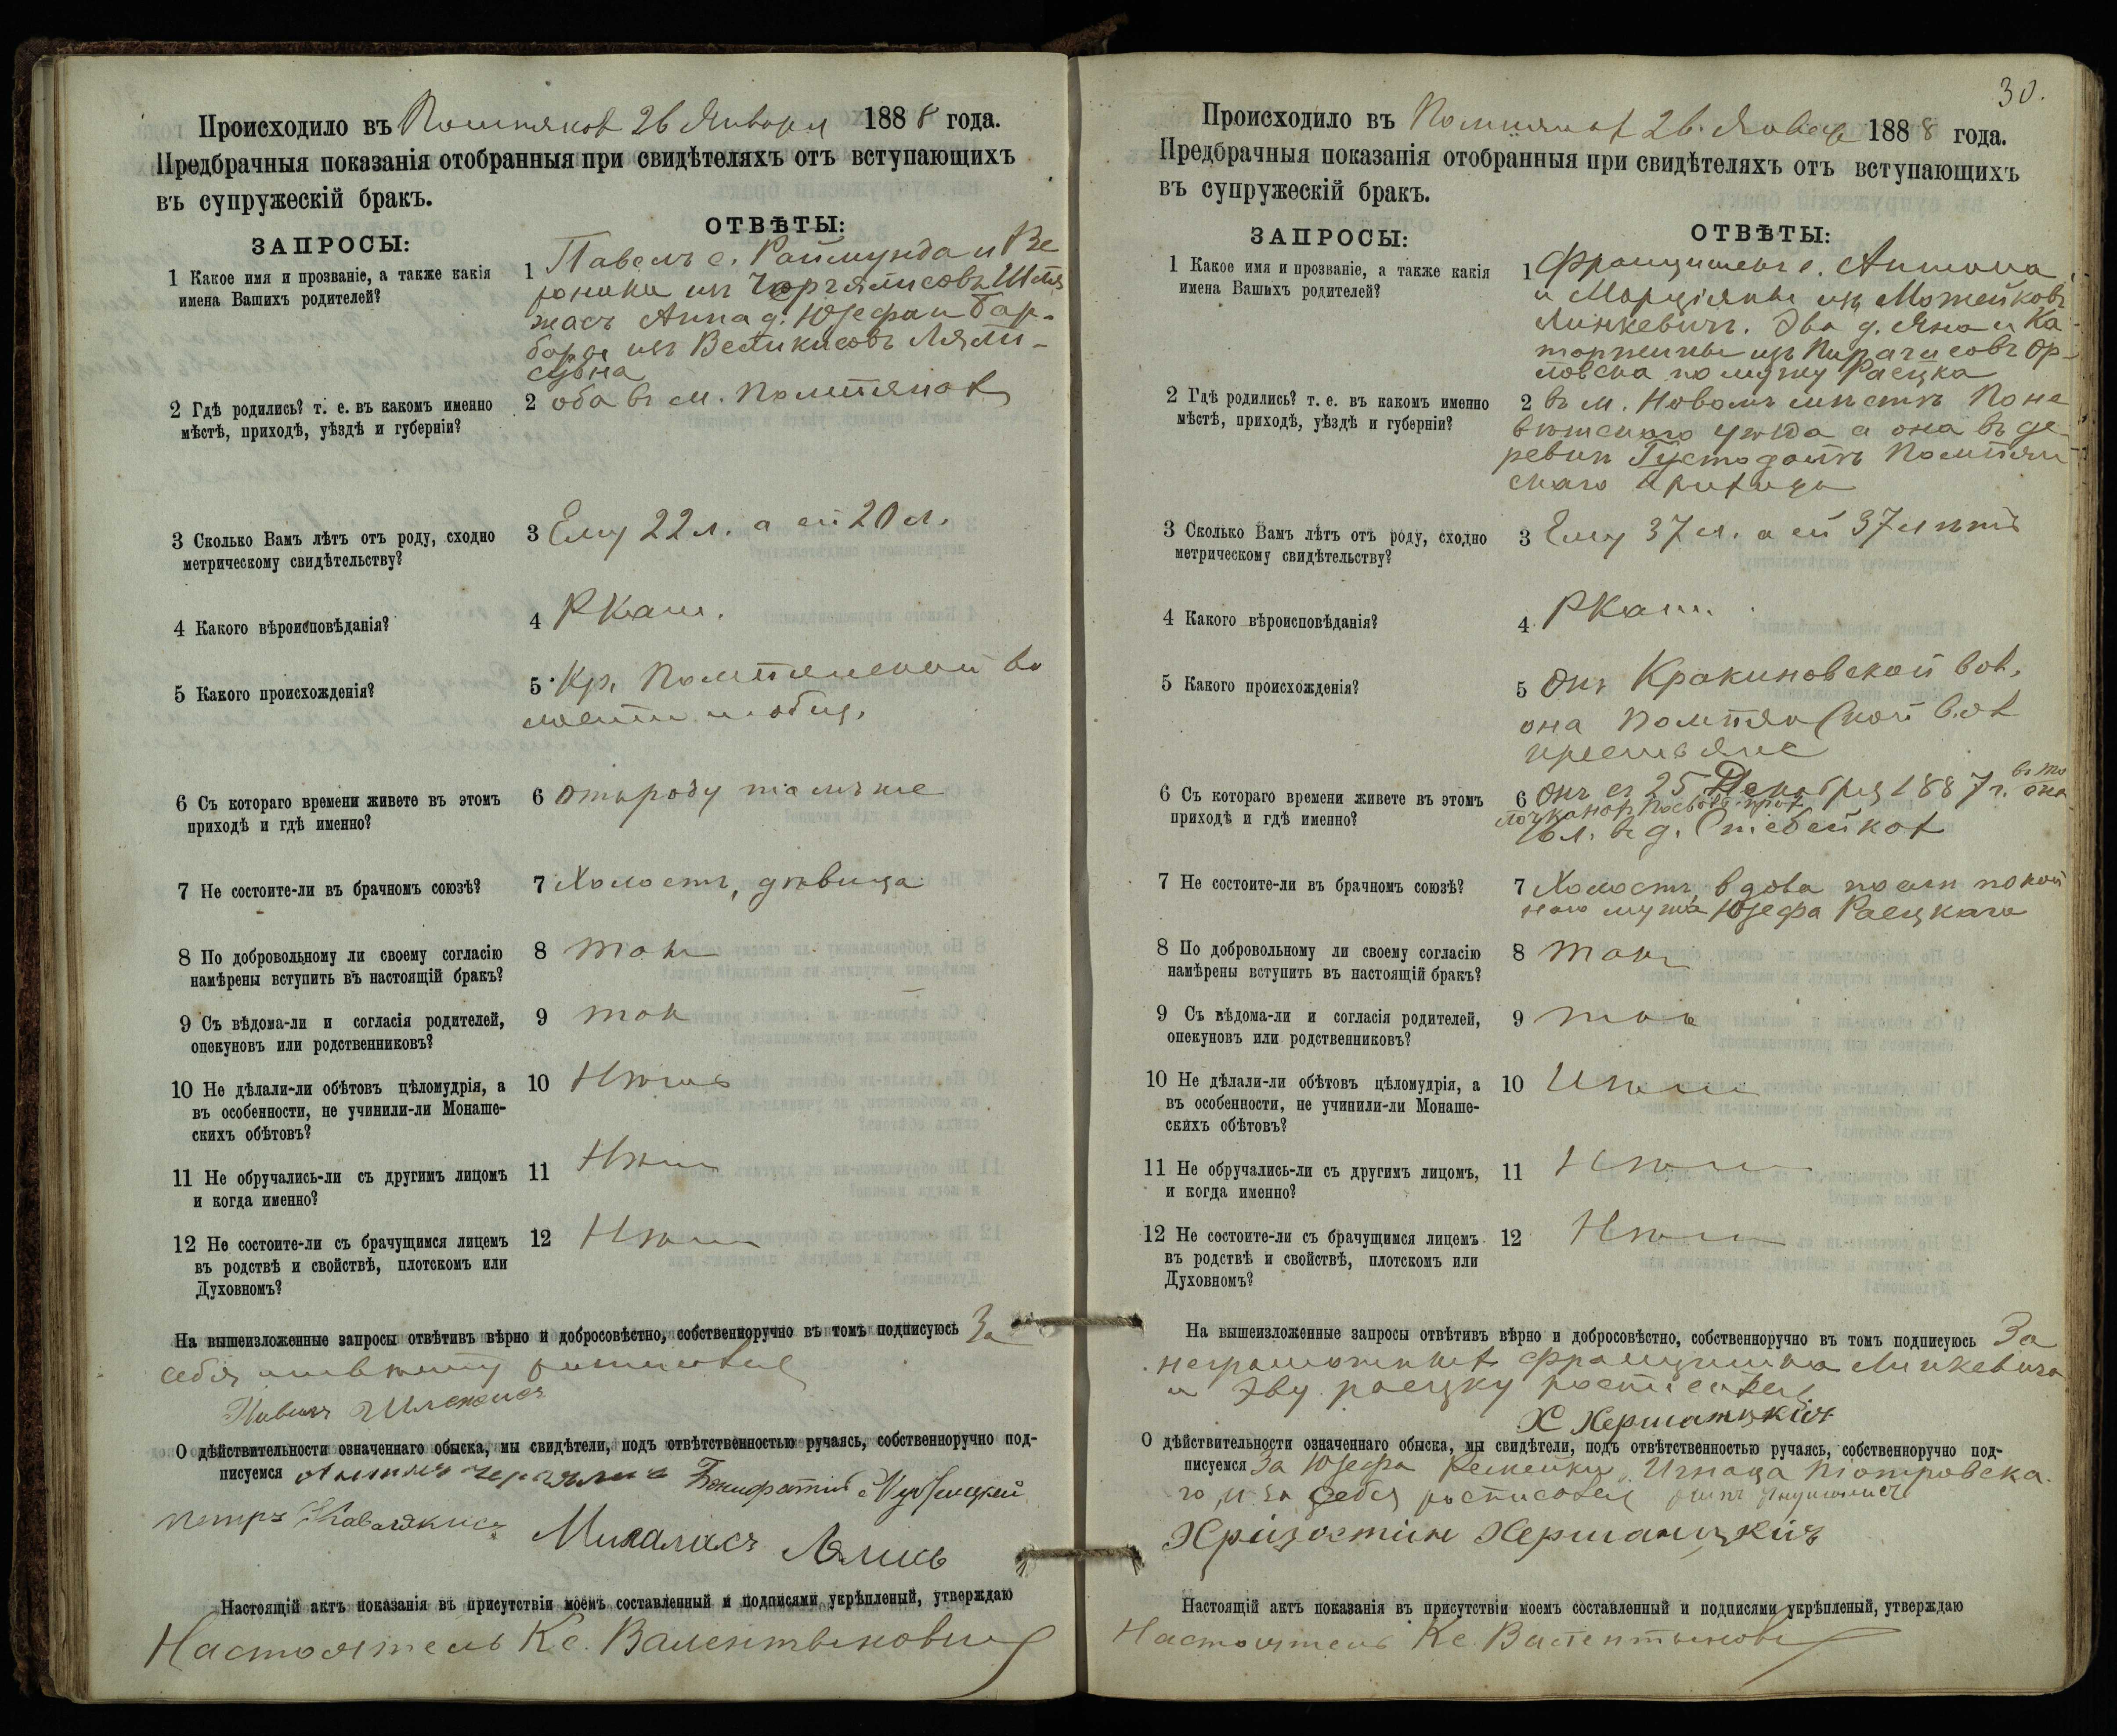 Происходило въ 26 Января 1888 года.
Предбрачныя показанія отобранныя при свидѣтеляхъ отъ вступающихъ
въ супружескій бракъ.
ЗАПРОСЫ:
ОТВѢТЫ:
1 Какое имя и прозваніе, а также какія
имена Вашихъ родителей?
1 Павелъ с. Раймунда и Ве
роники изъ
Анна д. Юзефа и Бар-
бары изъ
2 Гдѣ родились? т. е. въ какомъ именно
мѣстѣ, приходѣ, уѣздѣ и губерніи?
2 оба въ м.
3 Сколько Вамъ лѣтъ отъ роду, сходно
метрическому свидѣтельству?
3 Ему 22 л. а ей 20 л.
4 Какого вѣроисповѣданія?
4 РКат.
5 Какого происхожденія?
5 Кр. во
лости и общ.
6 Съ котораго времени живете въ этомъ
приходѣ и гдѣ именно?
6 отъ роду тамъ же
7 Не состоите-ли въ брачномъ союзѣ?
7 Холостъ, дѣвица
8 По добровольному ли своему согласію
намѣрены вступить въ настоящій бракъ?
8 такъ
9 Съ вѣдома-ли и согласія родителей,
опекуновъ или родственниковъ?
9 такъ
10 Не дѣлали-ли обѣтовъ цѣломудрія, а
въ особенности, не учинили-ли Монаше-
скихъ обѣтовъ?
10 Нѣтъ
11 Не обручались-ли съ другимъ лицомъ
и когда именно?
11 Нѣтъ
12 Не состоите-ли съ брачущимся лицемъ
въ родствѣ и свойствѣ, плотскомъ или
Духовномъ?
12 Нѣтъ
На вышеизложенные запросы отвѣтивъ вѣрно и добросовѣстно, собственноручно въ томъ подписуюсь За
себя
О дѣйствительности означеннаго обыска, мы свидѣтели, подъ отвѣтственностью ручаясь, собственноручно под-
писуемся
Петръ
Настоящій актъ показанія въ присутствіи моемъ составленный и подписями укрѣпленый, утверждаю
Настоятель Кс. Валентыновичъ
30.
Происходило въ 26 1888 года.
Предбрачныя показанія отобранныя при свидѣтеляхъ отъ вступающихъ
въ супружескій бракъ.
ЗАПРОСЫ:
ОТВѢТЫ:
1 Какое имя и прозваніе, а также какія
имена Вашихъ родителей?
1 Францишекъ с. Антона
и Марціяны изъ Можейковъ
Линкевичъ. Эва д. Яна и Ка
торжины изъ Ор-
ловска по мужу Раецка
2 Гдѣ родились? т. е. въ какомъ именно
мѣстѣ, приходѣ, уѣздѣ и губерніи?
2 въ м. Новомъ мѣстѣ Поне
вѣжскаго уѣзда а она въ де
ревни
скаго прихода
3 Сколько Вамъ лѣтъ отъ роду, сходно
метрическому свидѣтельству?
3 Ему 37 л. а ей 37 лѣтъ
4 Какого вѣроисповѣданія?
4 РКат.
5 Какого происхожденія?
5 Онъ Кракиновской вол.
она вол
крестьяне
6 Съ котораго времени живете въ этомъ
приходѣ и гдѣ именно?
6 Онъ съ 25 Декабря 1887 г. она
въ д.
7 Не состоите-ли въ брачномъ союзѣ?
7 Холостъ, вдова послѣ покой
наго мужа Юзефа Раецкаго
8 По добровольному ли своему согласію
намѣрены вступить въ настоящій бракъ?
8 такъ
9 Съ вѣдома-ли и согласія родителей,
опекуновъ или родственниковъ?
9 такъ
10 Не дѣлали-ли обѣтовъ цѣломудрія, а
въ особенности, не учинили-ли Монаше-
скихъ обѣтовъ?
10 Нѣтъ
11 Не обручались-ли съ другимъ лицомъ,
и когда именно?
11 Нѣтъ
12 Не состоите-ли съ брачущимся лицемъ
въ родствѣ и свойствѣ, плотскомъ или
Духовномъ?
12 Нѣтъ
На вышеизложенные запросы отвѣтивъ вѣрно и добросовѣстно, собственноручно въ томъ подписуюсь За
неграмотныхъ Францишка Линкевича
и Эву Раецку
О дѣйствительности означеннаго обыска, мы свидѣтели, подъ отвѣтственностью ручаясь, собственноручно под-
писуемся За Юзефа Игнаца
го, и за себя
Настоящій актъ показанія въ присутствіи моемъ составленный и подписями укрѣпленый, утверждаю
Настоятель Кс.